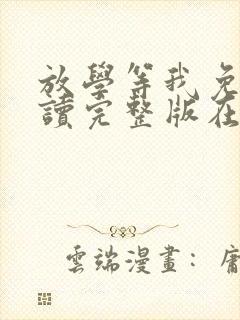 放學等我免
讀完整版在
雲端漫畫：